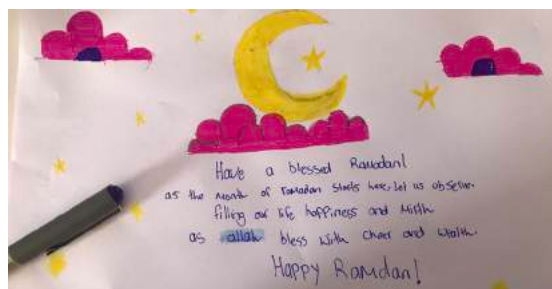 Have a blessed Ramadan!
as the month of ramadan starts here, let us observe.
filling our life happiness and Mirth
as allah bless with Cheer and wealth.
Happy Ramdan!